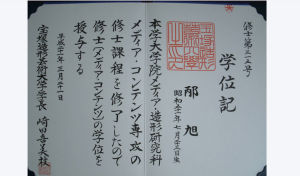 修士第三一五号
学位記
郁旭
昭和五十一年七月二十三日生
本学大学院メディア・造形研究科
メディア・コンテンツ専攻の
修士課程を修了したので
修士(メディア・コンテンツ)の学位を
授与する
平成二十一年三月二十一日
宝塚造形芸術大学学長 崎田喜美枝